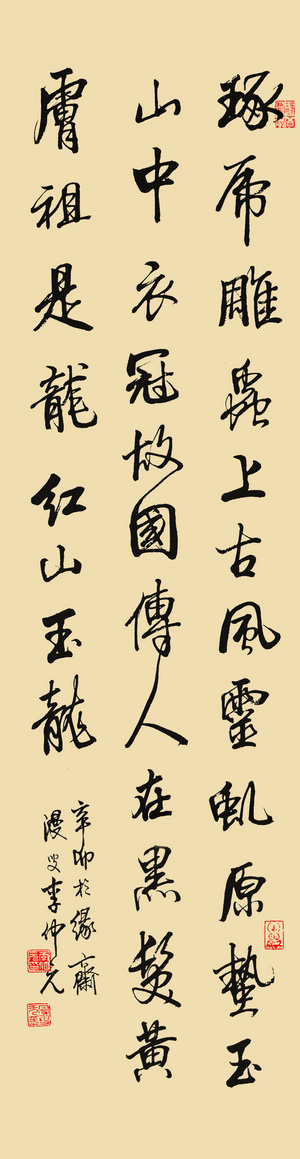 琢虎雕蟲上古風靈虬原蟄玉
山中衣冠故國傳人在黑髮黃
膚祖是龍紅山玉龍
辛卯於緣齋
漫叟李仲元